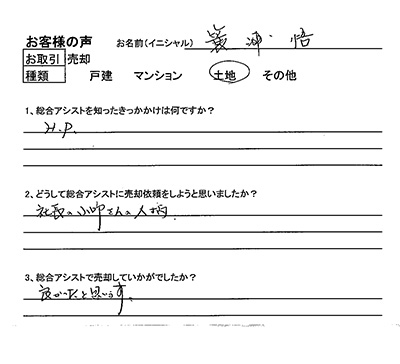 お客様の声 お名前(イニシャル) 簑浦 悟
お取引 売却
種類 戸建 マンション 土地 その他
1、総合アシストを知ったきっかけは何ですか?
H.P.
2、どうして総合アシストに売却依頼をしようと思いましたか?
社長の小峠さんの人柄
3、総合アシストで売却していかがでしたか?
良かったと思います。